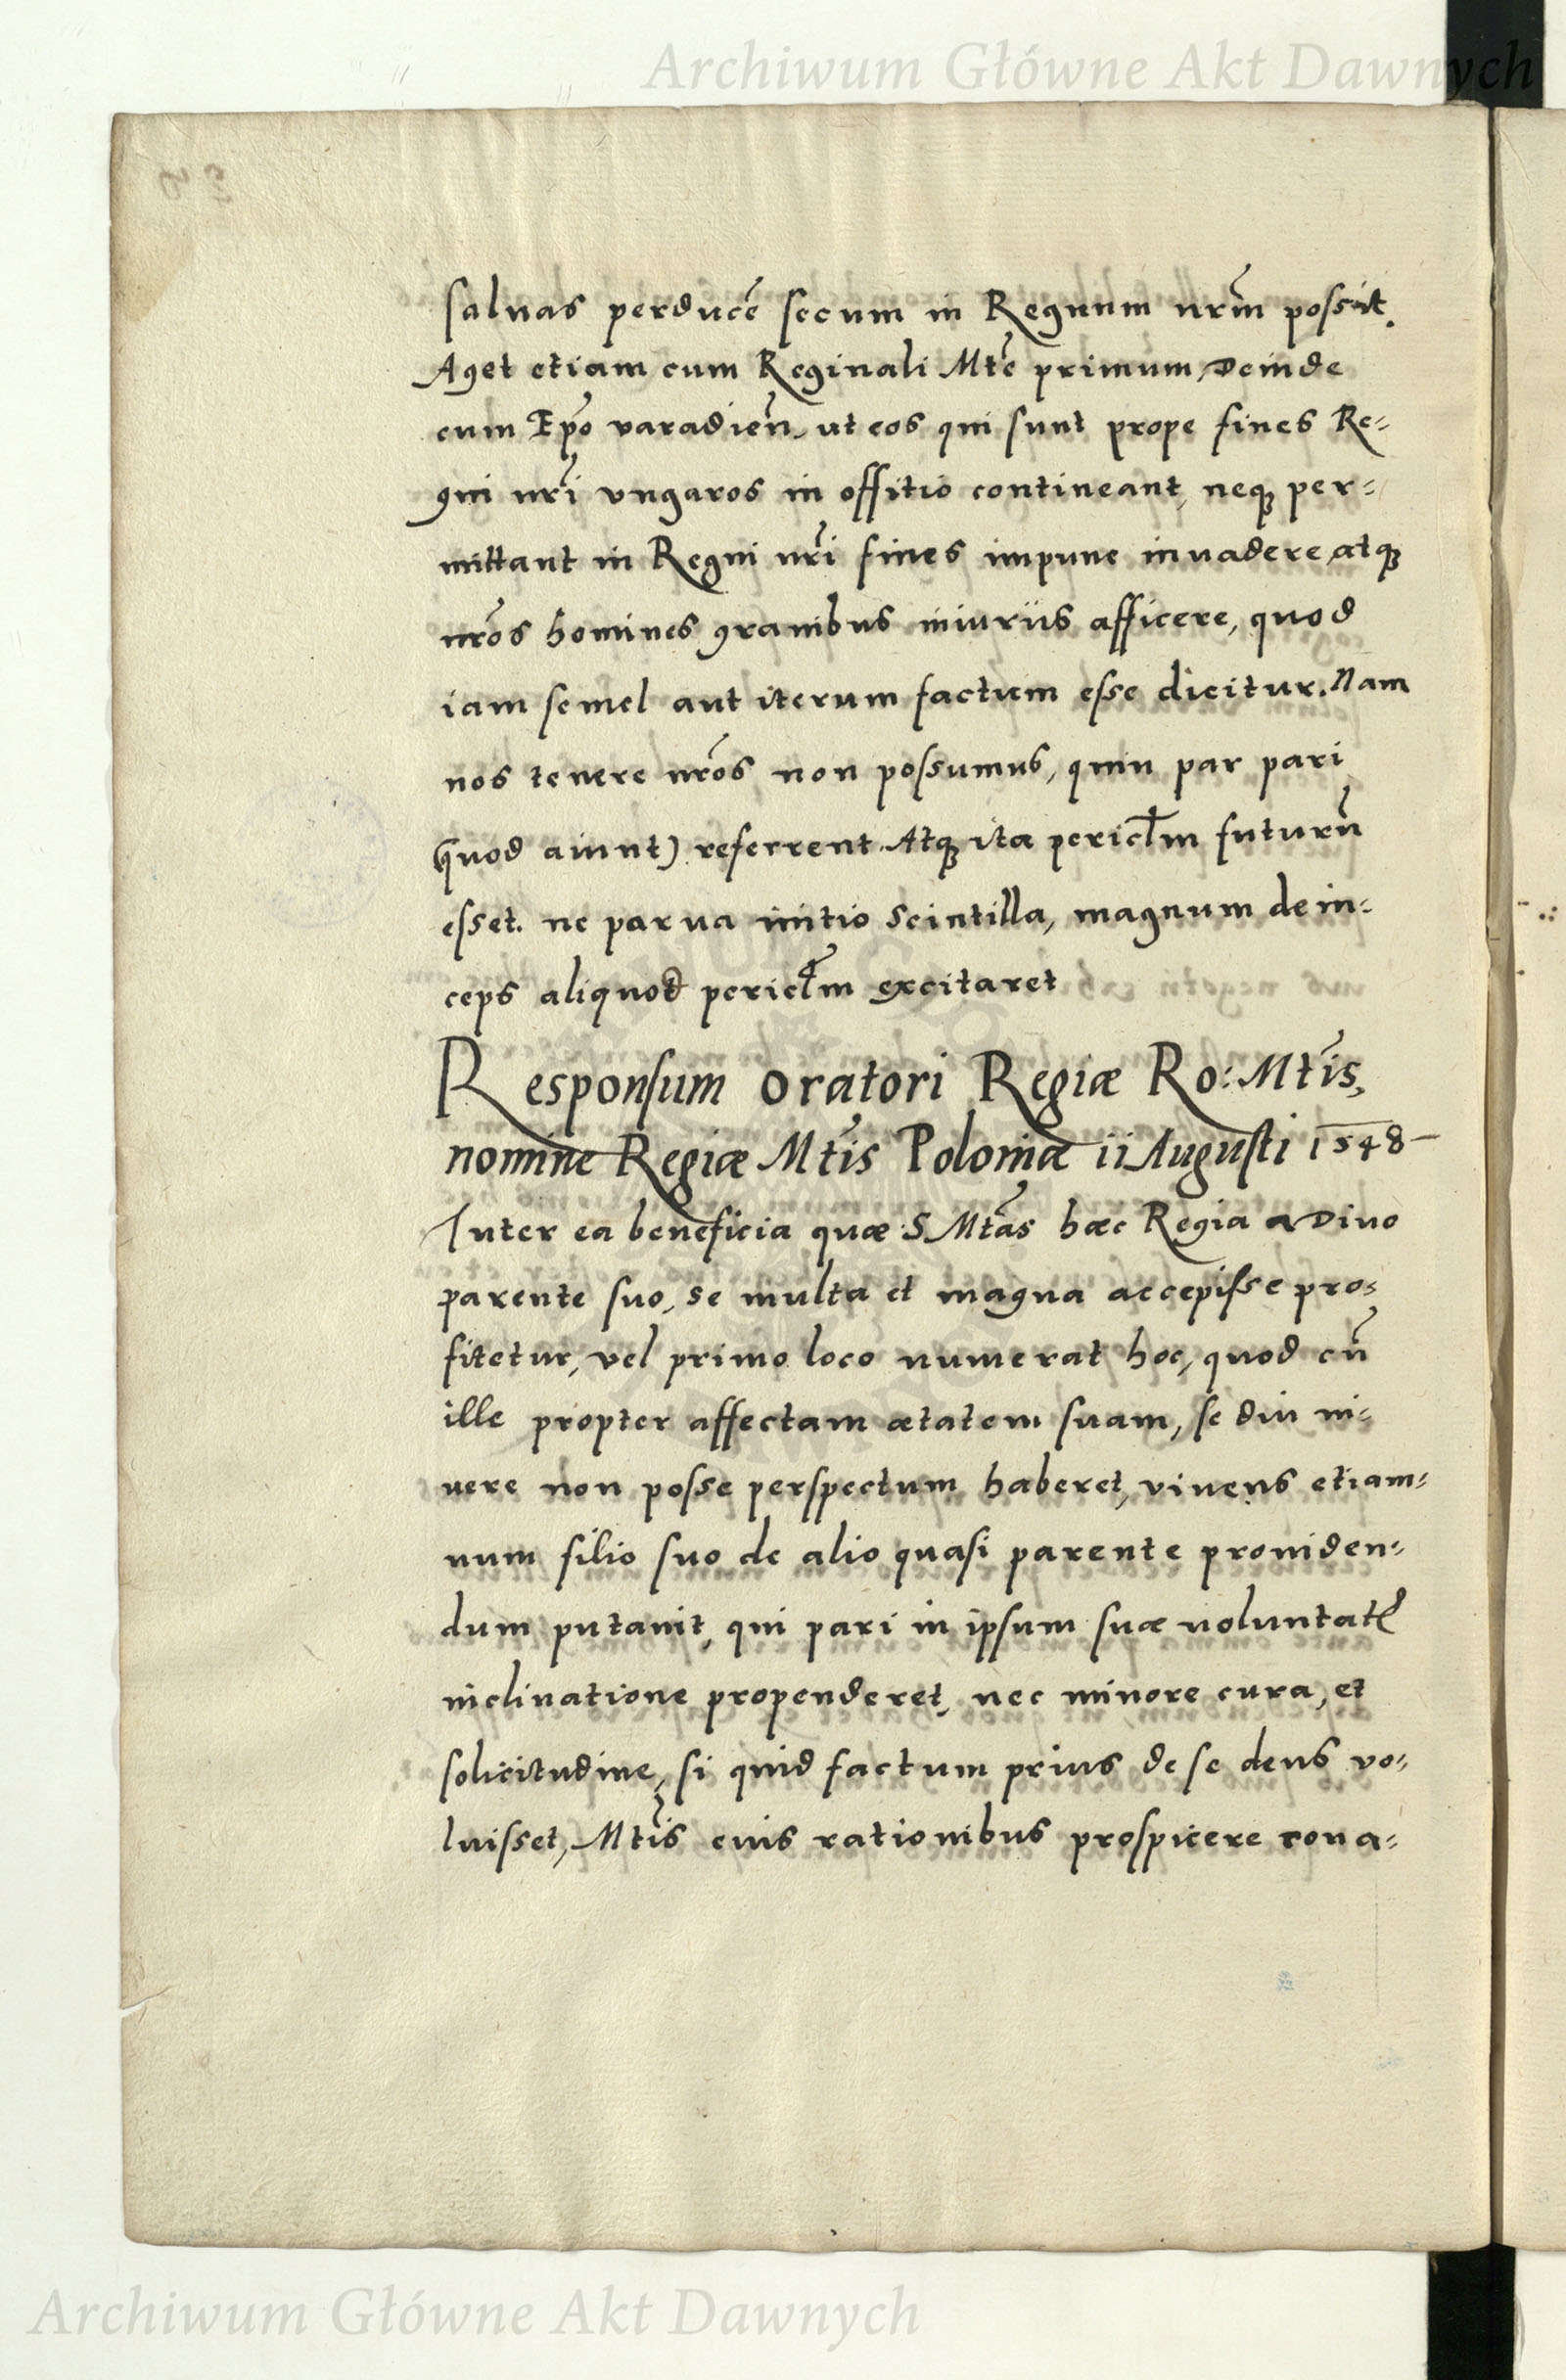 Archiwum Główne Akt Dawnych
saluas perducẽ secum in Regnum nrm̃ possit.
Aget etiam cum Reginali Mtẽ primum, Deinde
cum Ep̃o varadien̄, ut eos qui sunt prope fines Re-
gni nrĩ vngaros in offitio contineant, neq₃ per-
mittant in Regni nrĩ fines impune inuadere, atq₃
nrõs homines grauibus iniuriis afficere, quod
iam semel aut iterum factum esse dicitur. Nam
nos tenere nrõs non possumus, quin par pari
(quod aiunt) referrent. Atq₃ ita pericl̃m futurũ
esset. ne parua initio scintilla, magnum dein-
ceps aliquod pericl̃m excitaret
Responsum Oratori Regiæ Ro: Mtĩs,
nomine Regiæ Mtĩs Poloniæ ii Augusti 1548
Inter ea beneficia quæ S Mtãs hæc Regia a Diuo
parente suo, se multa et magna accepisse pro-
fitetur, vel primo loco numerat hoc, quod cũ
ille propter affectam ætatem suam, se diu ui-
uere non posse perspectum haberet, viuens etiam-
num filio suo de alio quasi parente prouiden-
dum putauit, qui pari in ipsum suæ uoluntatẽ
inclinatione propenderet, nec minore cura, et
solicitudine, si quid factum prius de se deus vo-
luisset, Mtĩs eius rationibus prospicere cona-
Archiwum Główne Akt Dawnych